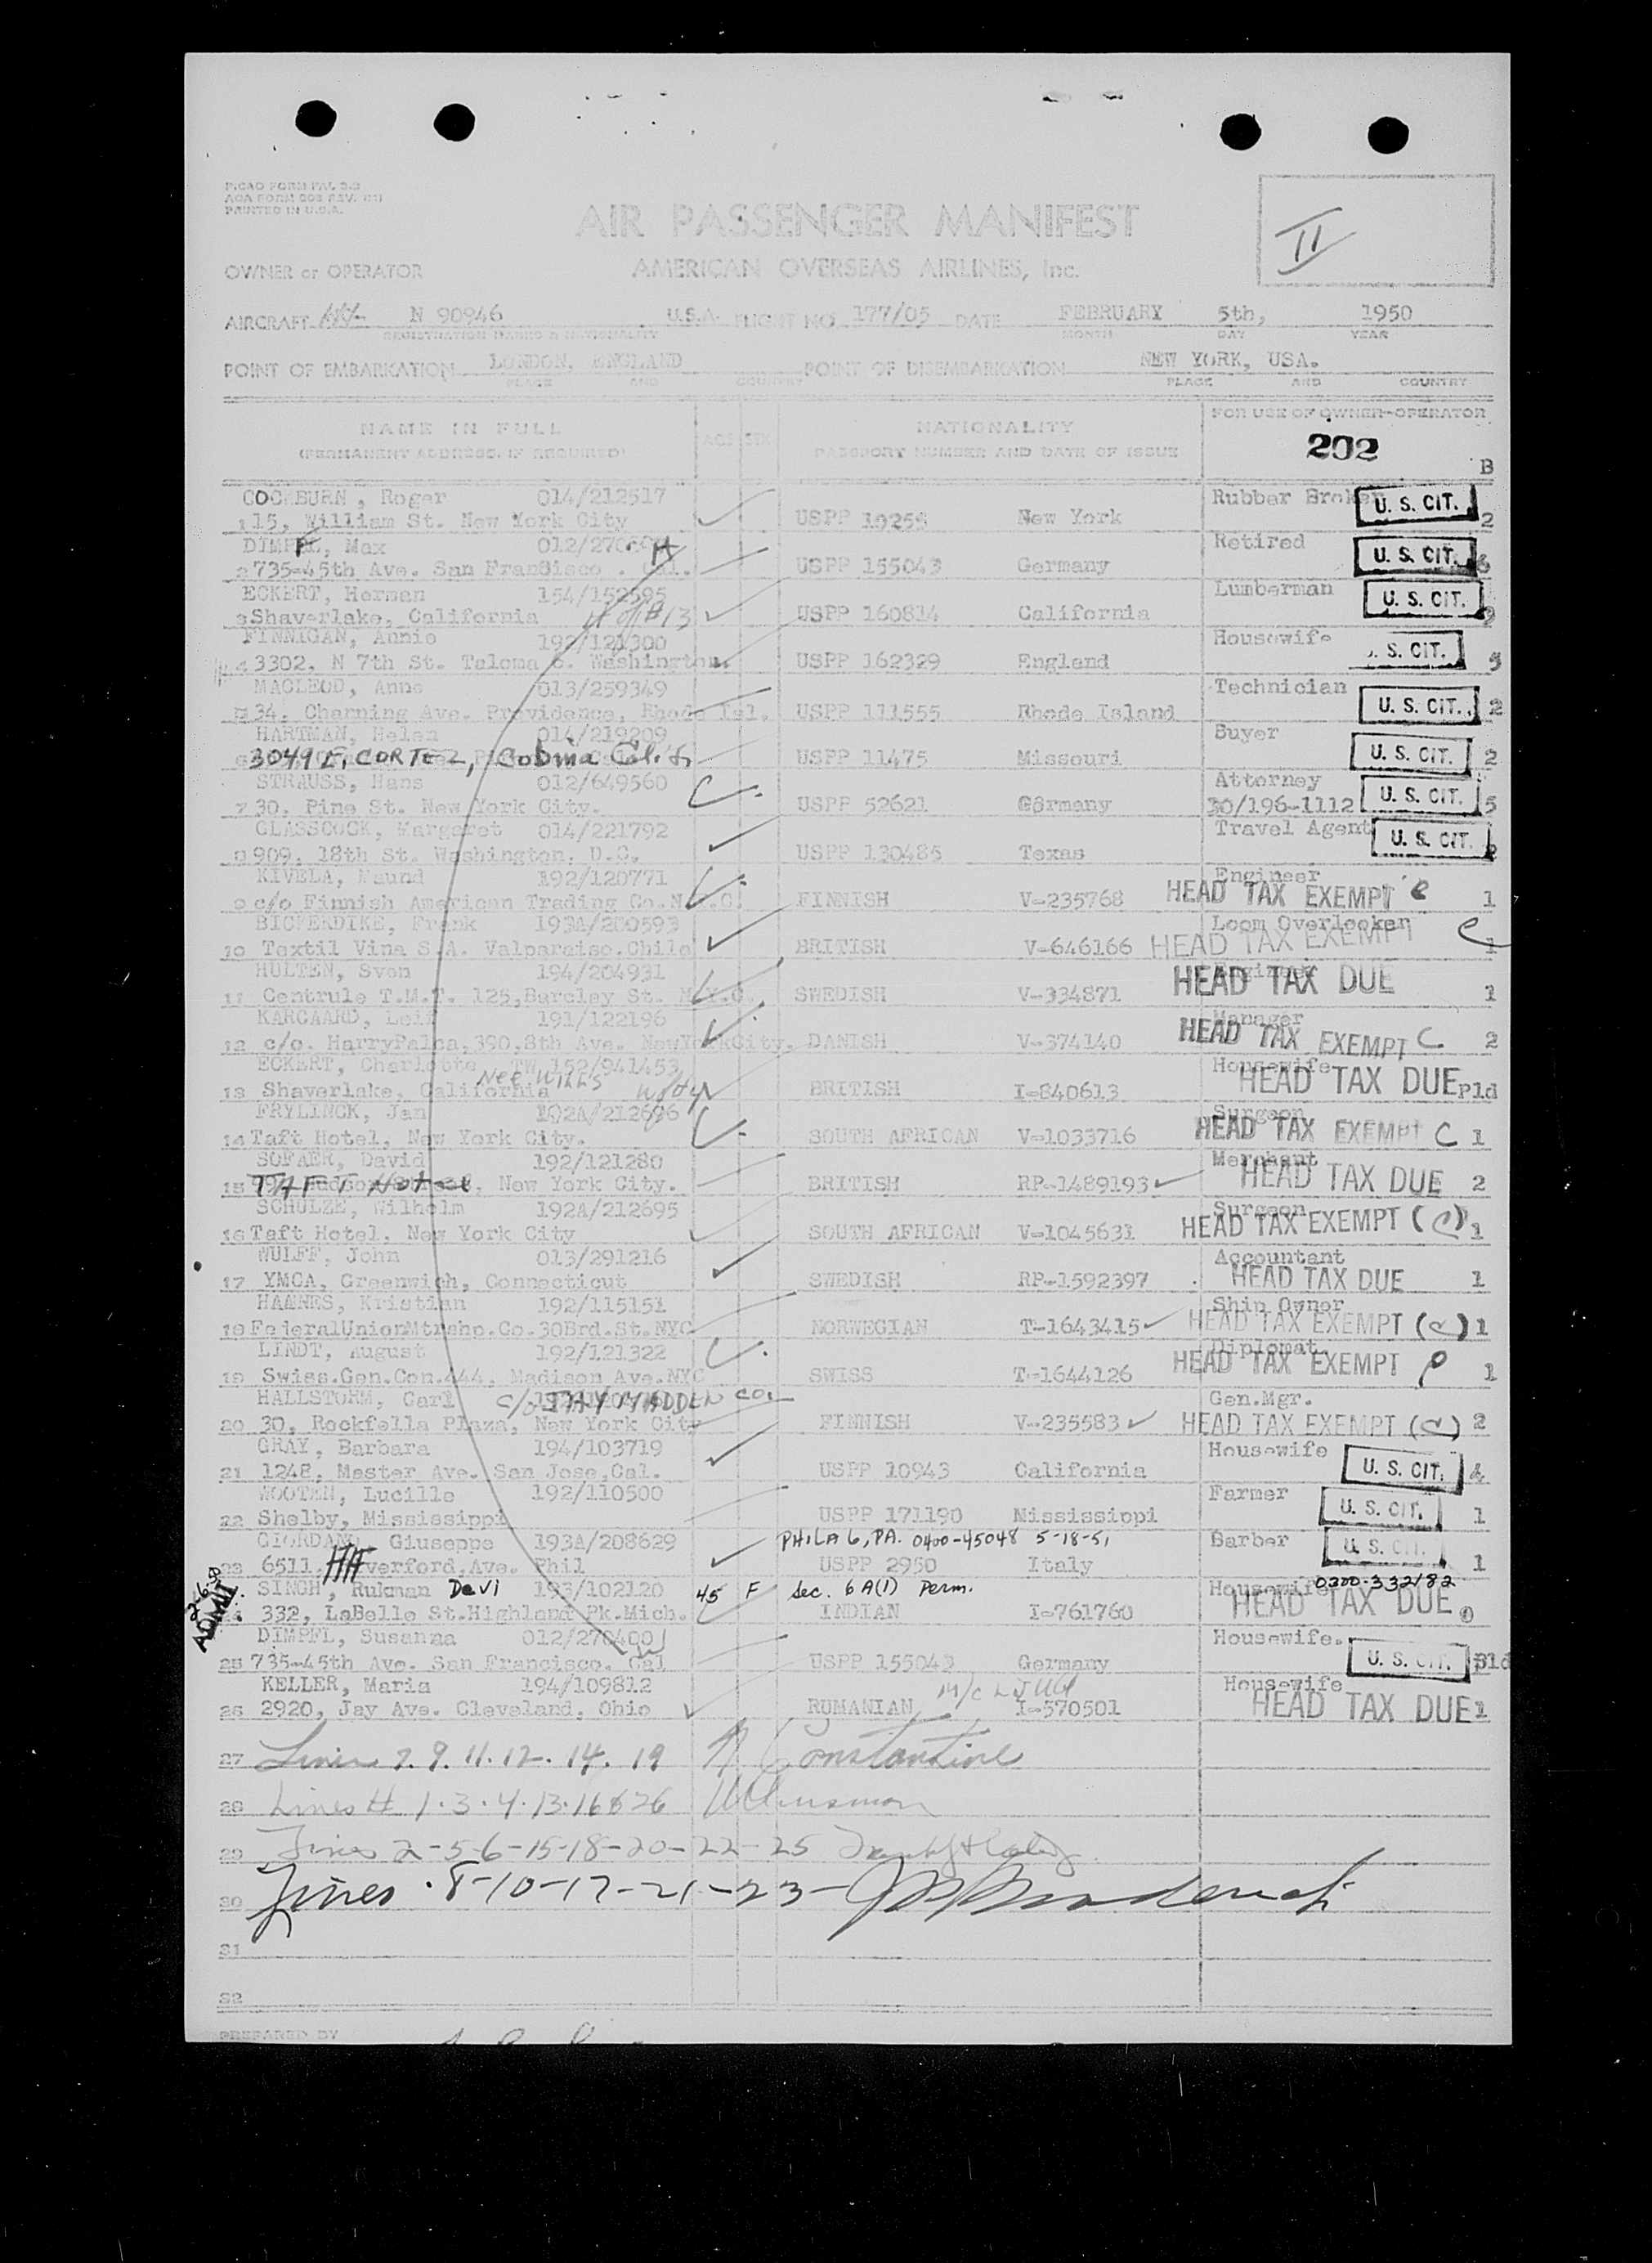 PICAO FORM FAL 3.3
PRINTED IN U.S.A.
AIR PASSENGER MANIFEST
II
OWNER or OPERATOR
AMERICAN OVERSEAS AIRLINES, Inc.
AIRCRAFT N 90946 U.S.A. FLIGHT NO. 177/05 DATE FEBRUARY 5th, 1950
REGISTRATION MARKS & NATIONALITY MONTH DAY YEAR
POINT OF EMBARKATION LONDON, ENGLAND POINT OF DISEMBARKATION NEW YORK, USA.
PLACE AND COUNTRY PLACE AND COUNTRY
NAME IN FULL AGE SEX NATIONALITY FOR USE OF OWNER-OPERATOR
(PERMANENT ADDRESS, IF REQUIRED) PASSPORT NUMBER AND DATE OF ISSUE 202
B
COCKBURN, Roger 014/212517 Rubber Broker U. S. CIT.
1 15, William St. New York City USPP New York 2
DIMPFL, Max H Retired U. S. CIT.
2 735-45th Ave. San Francisco. Cal. USPP 155043 Germany
ECKERT, Herman 154/152595 Lumberman U. S. CIT.
3 Shaverlake, California H of #13 USPP 160814 California
FINNIGAN, Annie 192/121300 Housewife S. CIT.
4 3302. N 7th St. Washington. USPP 162329 England 5
MACLEOD, Anne 013/259349 Technician U. S. CIT.
5 34, Channing Ave. Providence, Rhode Isl. USPP 111555 Rhode Island 2
HARTMAN, Helen 014/219209 Buyer U. S. CIT.
6 3049 E. CORTEZ, Cobina Calif USPP 11475 Missouri 2
STRAUSS, Hans 012/649560 Attorney U. S. CIT.
7 30, Pine St. New York City. USPP 52621 Germany 30/196-1112 5
GLASSCOCK, Margaret 014/221792 Travel Agent U. S. CIT.
8 909, 18th St. Washington, D.C. USPP 130485 Texas
KIVELA, Maund 192/120771 Engineer
9 c/o Finnish American Trading Co. N.Y.C. FINNISH V-235768 HEAD TAX EXEMPT C 1
BICKERDIKE, Frank 193A/200593 Loom Overlooker
10 Textil Vina S.A. Valparaiso. Chile BRITISH V-646166 HEAD TAX EXEMPT C 1
HULTEN, Sven 194/204931 Engineer
11 Centrule T.M.T. 125, Barclay St. N.Y.C. SWEDISH V-334871 HEAD TAX DUE 1
KARGAARD, Leif 191/122196 Manager
12 c/o. Harry Palca, 390, 8th Ave. New York City. DANISH V-374140 HEAD TAX EXEMPT C 2
ECKERT, Charlotte TW 152/941453 Housewife
13 Shaverlake, California NEE WILLS BRITISH I-840613 HEAD TAX DUE Pld
FRYLINCK, Jan 192A/212696 Surgeon
14 Taft Hotel, New York City. SOUTH AFRICAN V-1033716 HEAD TAX EXEMPT C 1
SOFAER, David 192/121280 Merchant
15 TAFT Hotel, New York City. BRITISH RP-1489193 HEAD TAX DUE 2
SCHULZE, Wilhelm 192A/212695 Surgeon
16 Taft Hotel, New York City SOUTH AFRICAN V-1045631 HEAD TAX EXEMPT (C) 1
WULFF, John 013/291216 Accountant
17 YMCA, Greenwich, Connecticut SWEDISH RP-1592397 HEAD TAX DUE 1
HAANES, Kristian 192/115151 Ship Owner
18 FederalUnionMtrshp.Co. 30Brd.St.NYC NORWEGIAN T-1643415 HEAD TAX EXEMPT (C) 1
LINDT, August 192/121322 Diplomat
19 Swiss.Gen.Con.444, Madison Ave.NYC SWISS T-1644126 HEAD TAX EXEMPT 1
HALLSTORM, Carl c/o JAY MADDEN CO. Gen.Mgr.
20 30, Rockfella Plaza, New York City FINNISH V-235583 HEAD TAX EXEMPT (C) 2
GRAY, Barbara 194/103719 Housewife U. S. CIT.
21 1248, Mester Ave. San Jose, Cal. USPP 10943 California 4
WOOTEN, Lucille 192/110500 Farmer U. S. CIT.
22 Shelby, Mississippi USPP 171190 Mississippi 1
GIORDANO, Giuseppe 193A/208629 PHILA 6, PA. 0400-45048 5-18-51 Barber U. S. CIT.
23 6511, Haverford.Ave. Phil USPP 2950 Italy 1
ADMIT
SINGH, Rukman Devi 193/102120 45 F Sec. 6 A(1) Perm. Housewife 0300-332182
24 332, LaBelle St. Highland Pk. Mich. INDIAN I-761760 HEAD TAX DUE
DIMPFL, Susanna 012/270400 Housewife. U. S. CIT.
25 735-45th Ave. San Francisco. Cal USPP 155043 Germany
KELLER, Maria 194/109812 Housewife
26 2920, Jay Ave. Cleveland, Ohio RUMANIAN I-570501 HEAD TAX DUE 1
27 Lines 7. 9. 11. 12. 14. 19 Constantine
28 Lines # 1. 3. 4. 13. 16 & 26
29 Lines 2-5-6-15-18-20-22-25
30 Lines 8-10-17-21-23-
31
32
PREPARED BY